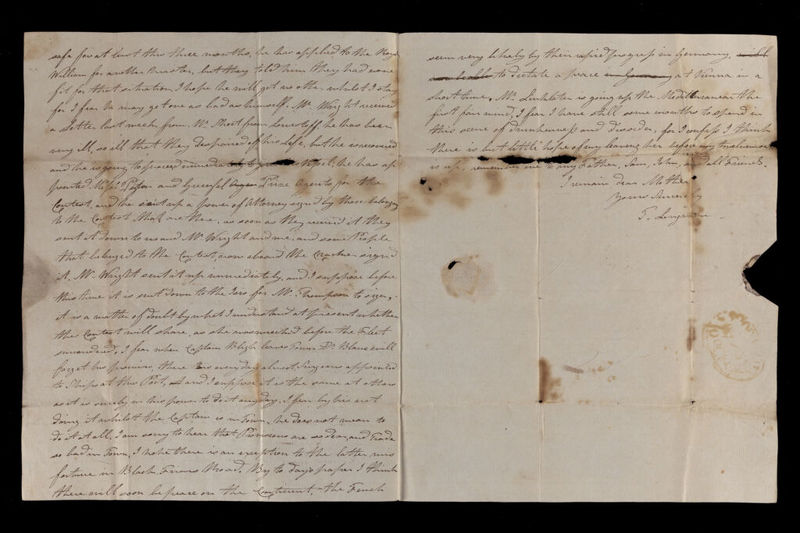 safe for at least this three months, he has applied to the
William for another Master, but they told him they had none
fit for that situation I hope he will get no other whilst I stay
for I fear he may get one as bad as himself. Mr Wright received
a letter last week from Mr Short from he has been
very Ill, so all that they despaired of his Life, but he recovered
and he is going to proceed he has ap
pointed and Prize Agents, for the
Contest, and he sent up a power of Attorney signd by those belonging
to the Contest that are there, as soon as they received it they
sent it down to us and Mr Wright and me, and some People
that belonged to the Contest, now aboard the signd
it. Mr Wright sent it up immediately, and I suppose before
this time it is sent down to the for Mr Thompson to sign,
it is a matter of doubt by what I understand at present whether
the Contest will share, as she was wreck'd before the Fleet
surrendered, I fear when Captain Bligh leaves Town Dr Blane will
forget his promise, there is every day almost Surgeons appointed
to Ships at this Port, and I suppose it is the same at others
so it is surely in his power to do it any day, I fear by his not
doing it whilst the Captain is in Town, he does not mean to
do it at all. I am sorry to hear that Provisions are so dear, and Trade
so bad in Town, I hope there is an exception to the latter mis
fortune in Black Friars Road. By to Days paper I think
there will soon be peace on the Continent, the French
seem very likely by their rapid progress in Germany,
to dictate a peace at Vienna in a
short time, Mr is going up the Mediterranean the
first fair wind, I fear I have still some months to spend in
this scene of drunkenness and disorder, for I confess I think
there is but little hope of my leaving her before
is up, remember me to my Father, John, and all Friends.
I remain dear Mother
Yours Sincerely
T.